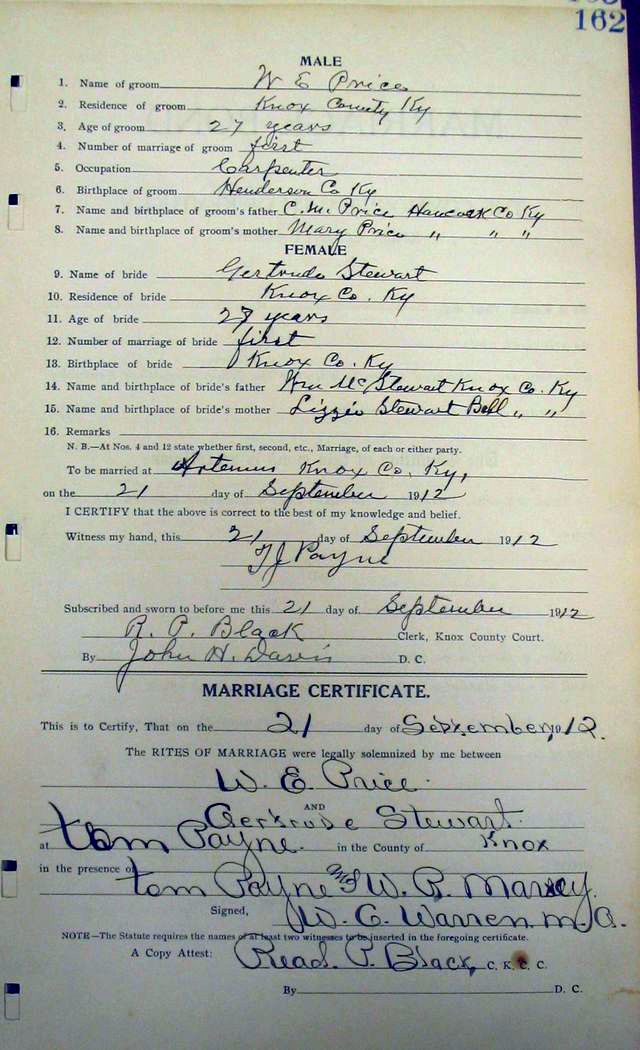 162
MALE
1. Name of groom W E Price
2. Residence of groom Knox County Ky
3. Age of groom 27 years
4. Number of marriage of groom first
5. Occupation Carpenter
6. Birthplace of groom Henderson Co Ky
7. Name and birthplace of groom's father C. M. Price Hancock Co Ky
8. Name and birthplace of groom's mother Mary Price " " "
FEMALE
9. Name of bride Gertrude Stewart
10. Residence of bride Knox Co. Ky
11. Age of bride years
12. Number of marriage of bride first
13. Birthplace of bride Knox Co. Ky
14. Name and birthplace of bride's father Wm Mc Stewart Knox Co. Ky
15. Name and birthplace of bride's mother Lizzie Stewart Bell " "
16. Remarks
N. B.—At Nos. 4 and 12 state whether first, second, etc., Marriage, of each or either party.
To be married at Artemus Knox Co. Ky,
on the 21 day of September 1912
I CERTIFY that the above is correct to the best of my knowledge and belief.
Witness my hand, this 21 day of September 1912
T J Payne
Subscribed and sworn to before me this 21 day of September 1912
R. P. Black Clerk, Knox County Court.
By John H. Davis D. C.
MARRIAGE CERTIFICATE.
This is to Certify, That on the 21 day of September, 1912.
The RITES OF MARRIAGE were legally solemnized by me between
W. E. Price.
AND
Gertrude Stewart.
at tom Payne. in the County of Knox
in the presence of tom Payne & Mrs W. R.
Signed, W. C. Warren. m.
NOTE—The Statute requires the names of at least two witnesses to be inserted in the foregoing certificate.
A Copy Attest: Read. P. Black, C. K. C. C.
By D. C.